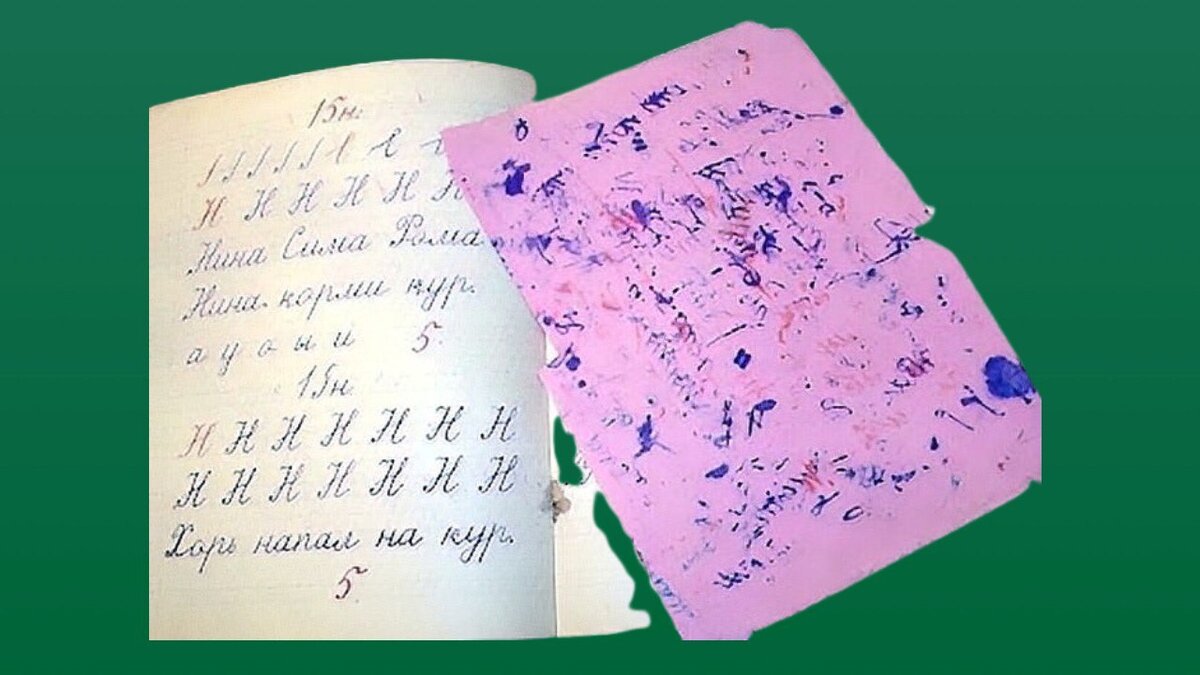 15н.
Н Н Н Н Н Н
Нина Сима Рома
Нина корми кур.
а у о ы и 5.
15н.
Н Н Н Н Н Н Н
Н Н Н Н Н Н Н
Хорь напал на кур.
5.